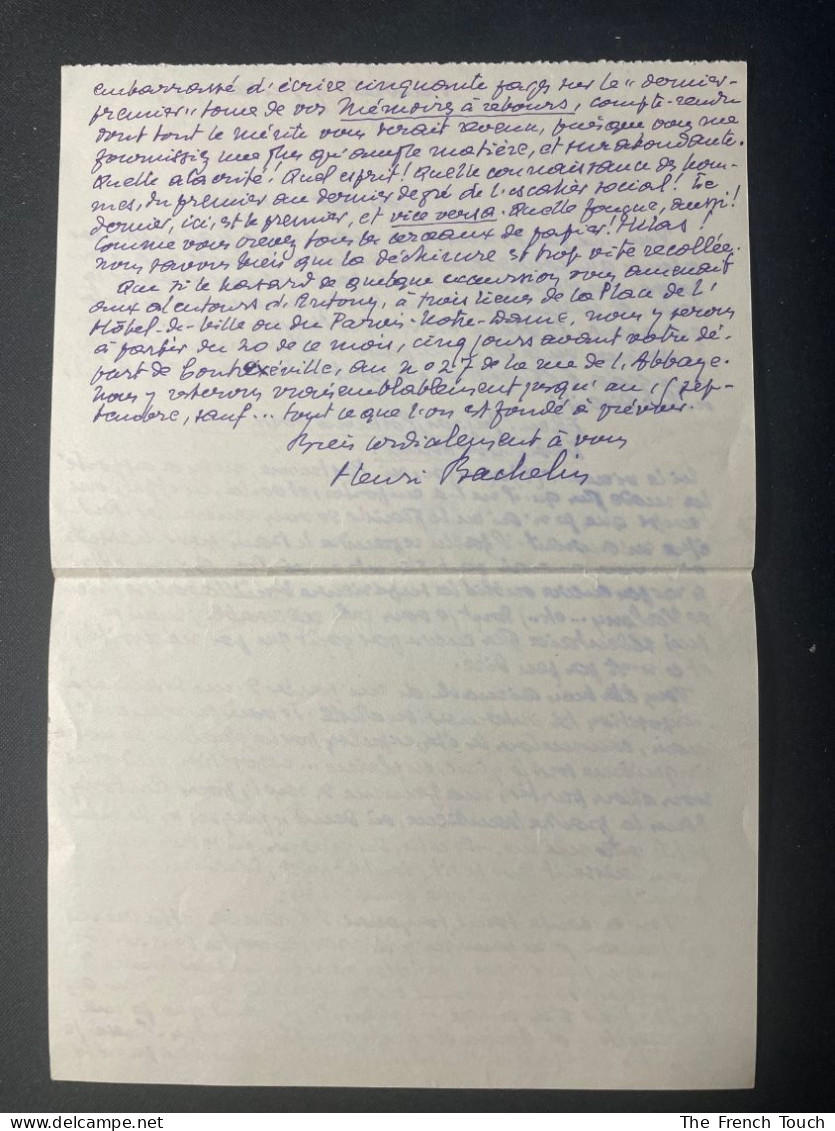 embarrassé d'écrire cinquante pages sur le "dernier-
premier" tome de vos Mémoires à rebours, compte-rendu
dont tout le mérite vous serait revenu, puisque vous me
fournissiez une plus qu'ample matière, et surabondante.
Quelle alacrité! Quel esprit! Quelle connaissance des hom-
mes, du premier au dernier degré de l'escalier social! Le
dernier, ici, est le premier, et vice versa. Quelle fougue, aussi!
Comme vous crevez tous les cerceaux de papier! Hélas!
nous savons bien que la déchirure est trop vite recollée.
Que si le hasard de quelque excursion vous amenait
aux alentours d'Antony, à trois lieues de la Place de l'
Hôtel-de-Ville ou du Parvis-Notre-Dame, nous y serons
à partir du 20 de ce mois, cinq jours avant votre dé-
part de Contrexéville, au no 27 de la rue de l'Abbaye.
Nous y resterons vraisemblablement jusqu'au 15 sep-
tembre, sauf... tout ce que l'on est fondé à prévoir.
Bien cordialement à vous
Henri Bachelin
The French Touch